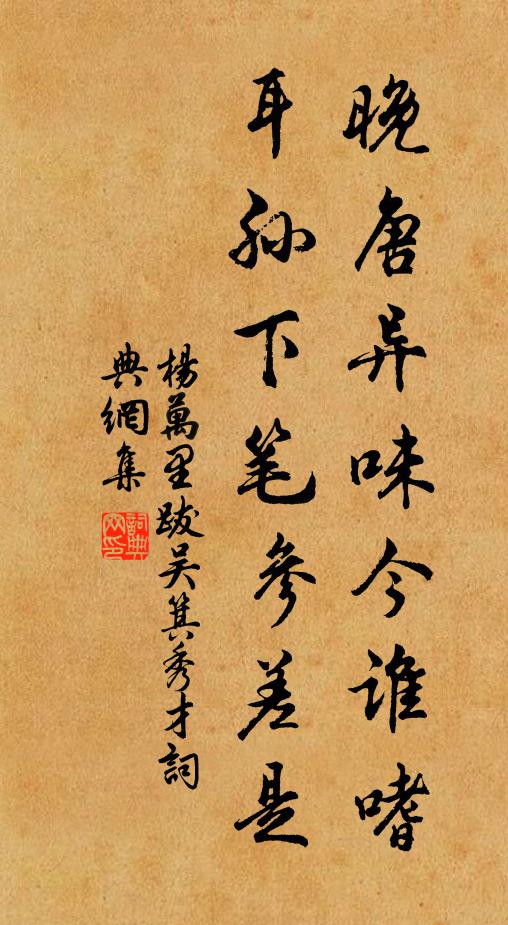 晚唐异味今谁嗜
耳孙下笔参差是
楊萬里跋吴箕秀才詞
典網集
詞典
网印